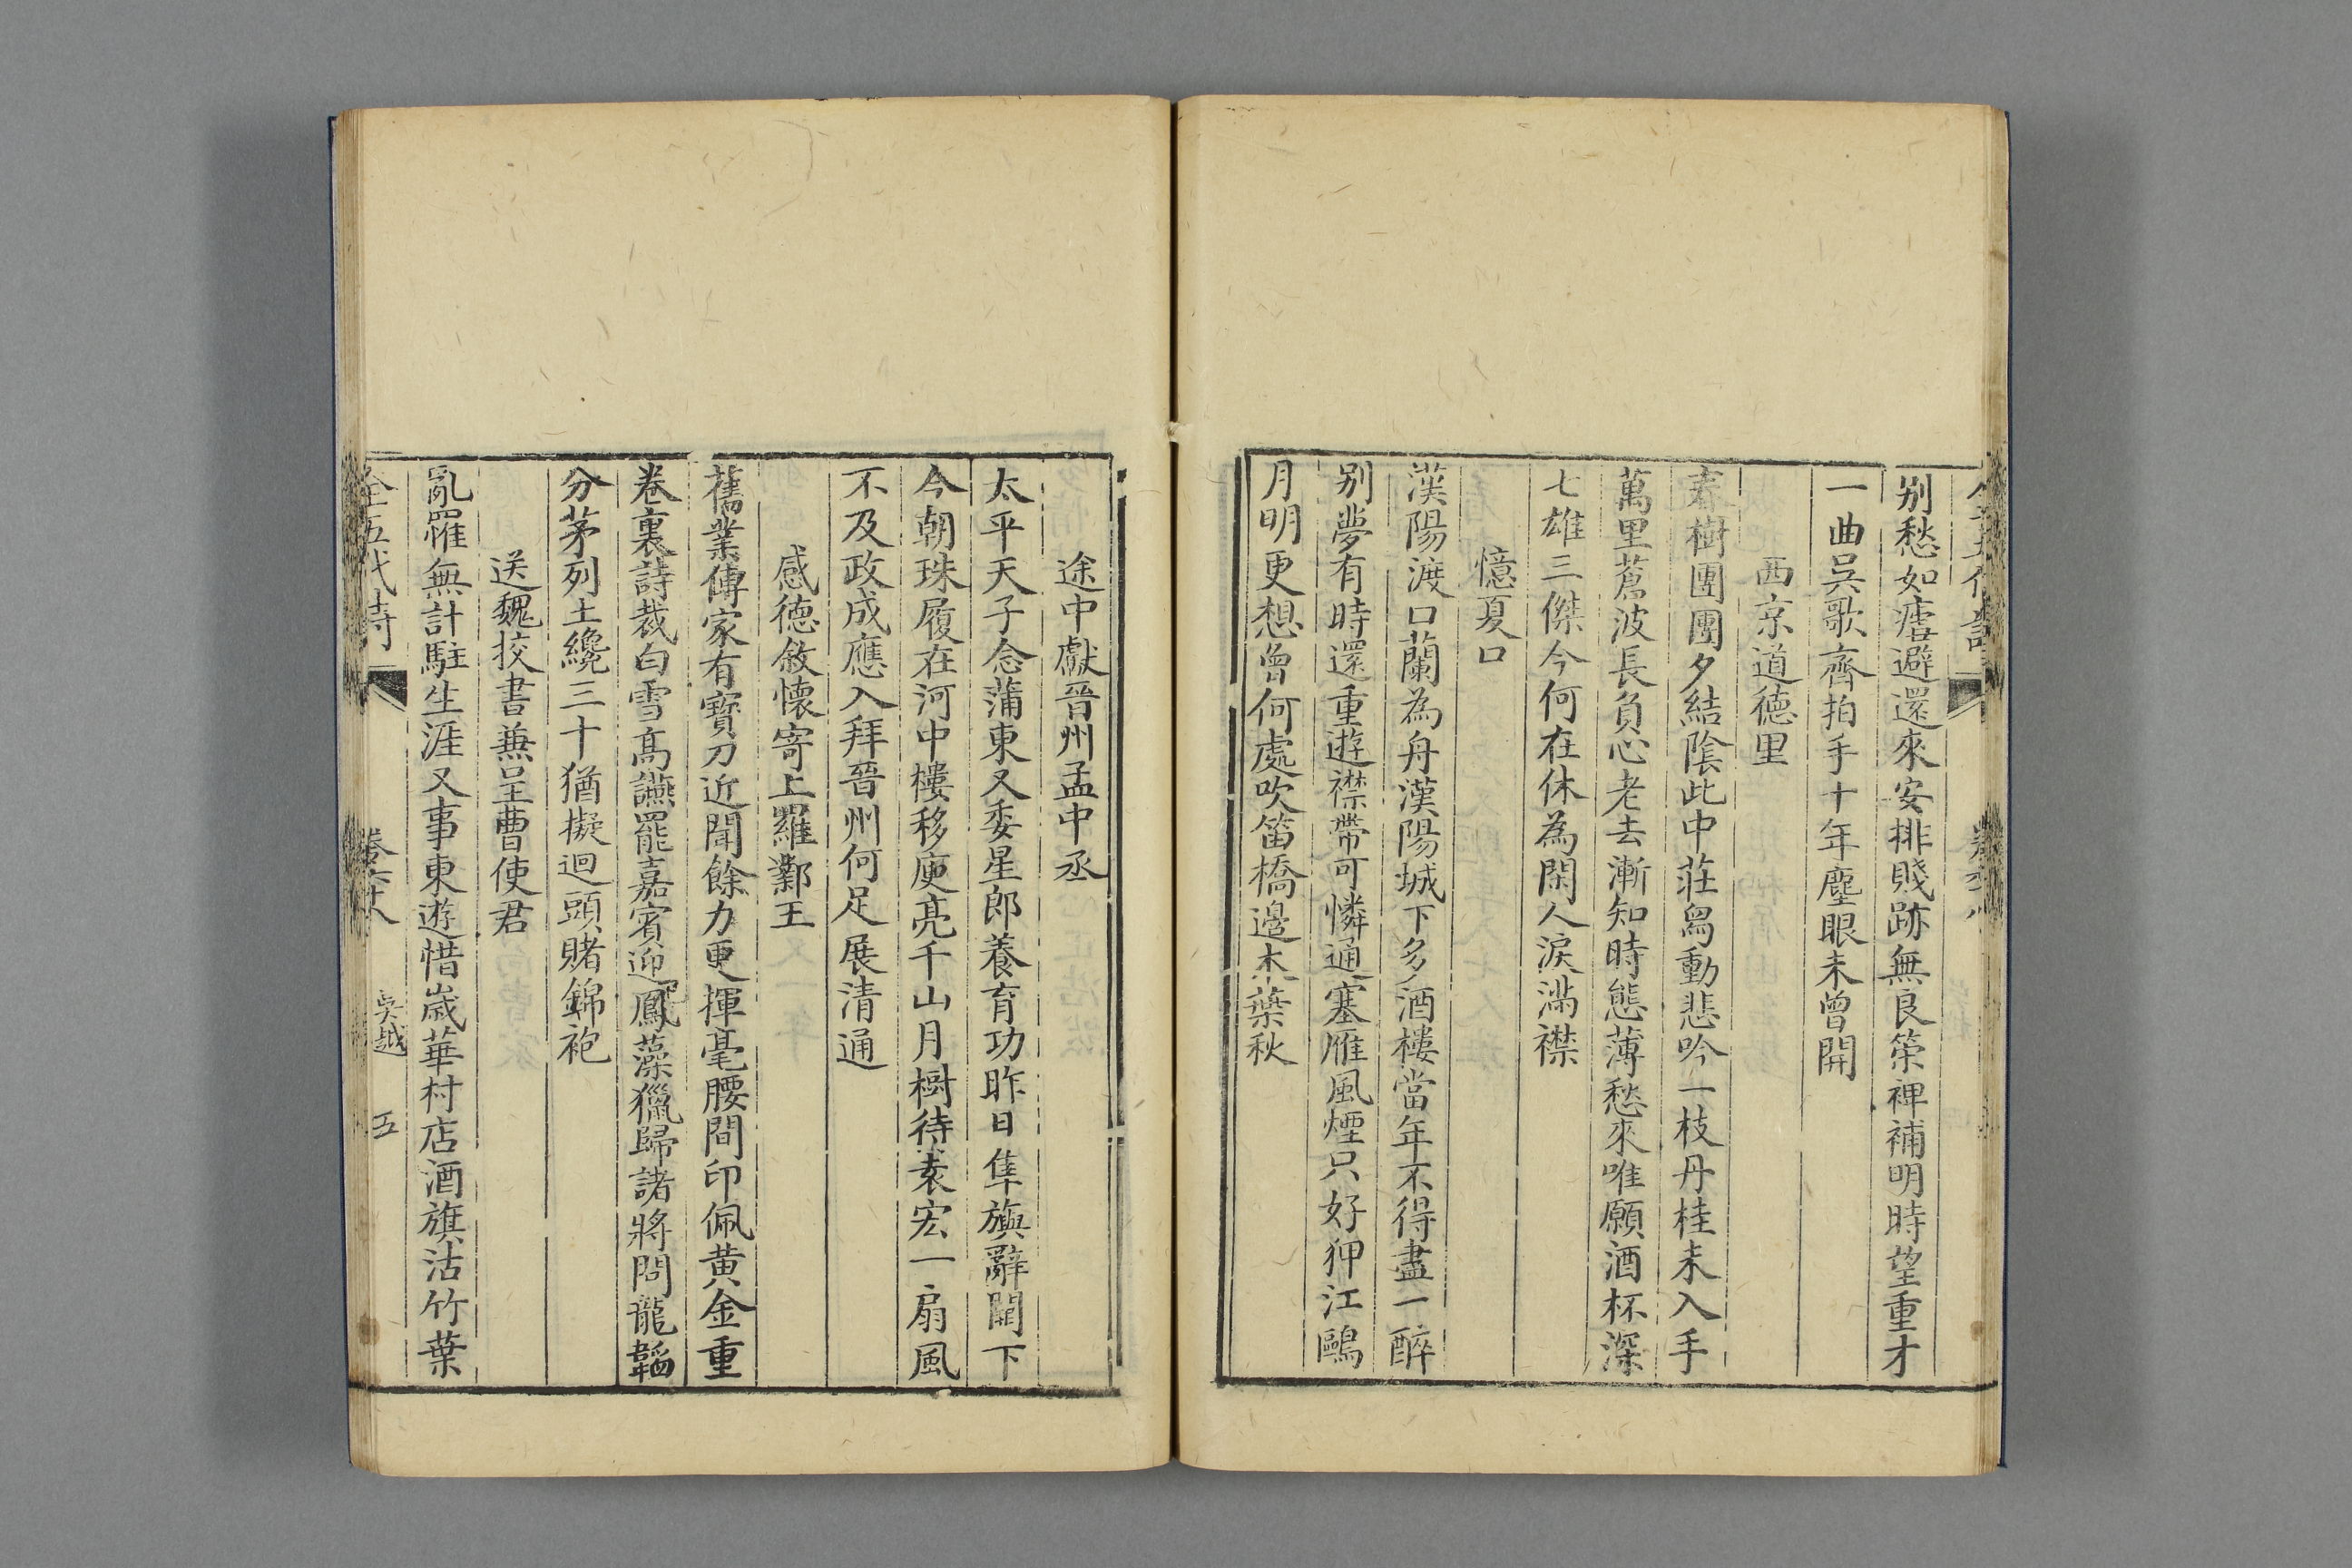 別愁如瘧避還來安排賤跡無良策裨補明時望重才
一曲吳歌齊拍手十年塵眼未曾開
西京道德里
秦樹團團夕結陰此中莊舄動悲吟一枝丹桂未入手
萬里蒼波長負心老去漸知時態薄愁來唯願酒杯深
七雄三傑今何在休為閑人淚滿襟
憶夏口
漢陽渡口蘭為舟漢陽城下多酒樓當年不得盡一醉
別夢有時還重遊襟帶可憐通塞雁風煙只好狎江鷗
月明更想曾何處吹笛橋邊木葉秋
途中獻晉州孟中丞
太平天子念蒲東又委星郎養育功昨日隼旟辭闕下
今朝珠履在河中樓移庾亮千山月樹待袁宏一扇風
不及政成應入拜晉州何足展清通
感德敘懷寄上羅鄴王
舊業傳家有寶刀近聞餘力更揮毫腰間印佩黃金重
卷裏詩裁白雪高讌罷嘉賓迎鳳藻獵歸諸將問龍韜
分茅列土纔三十猶擬迴頭賭錦袍
送魏挍書兼呈曹使君
亂罹無計駐生涯又事東遊惜歲華村店酒旗沽竹葉
全五代詩 卷六十八 吳越 五